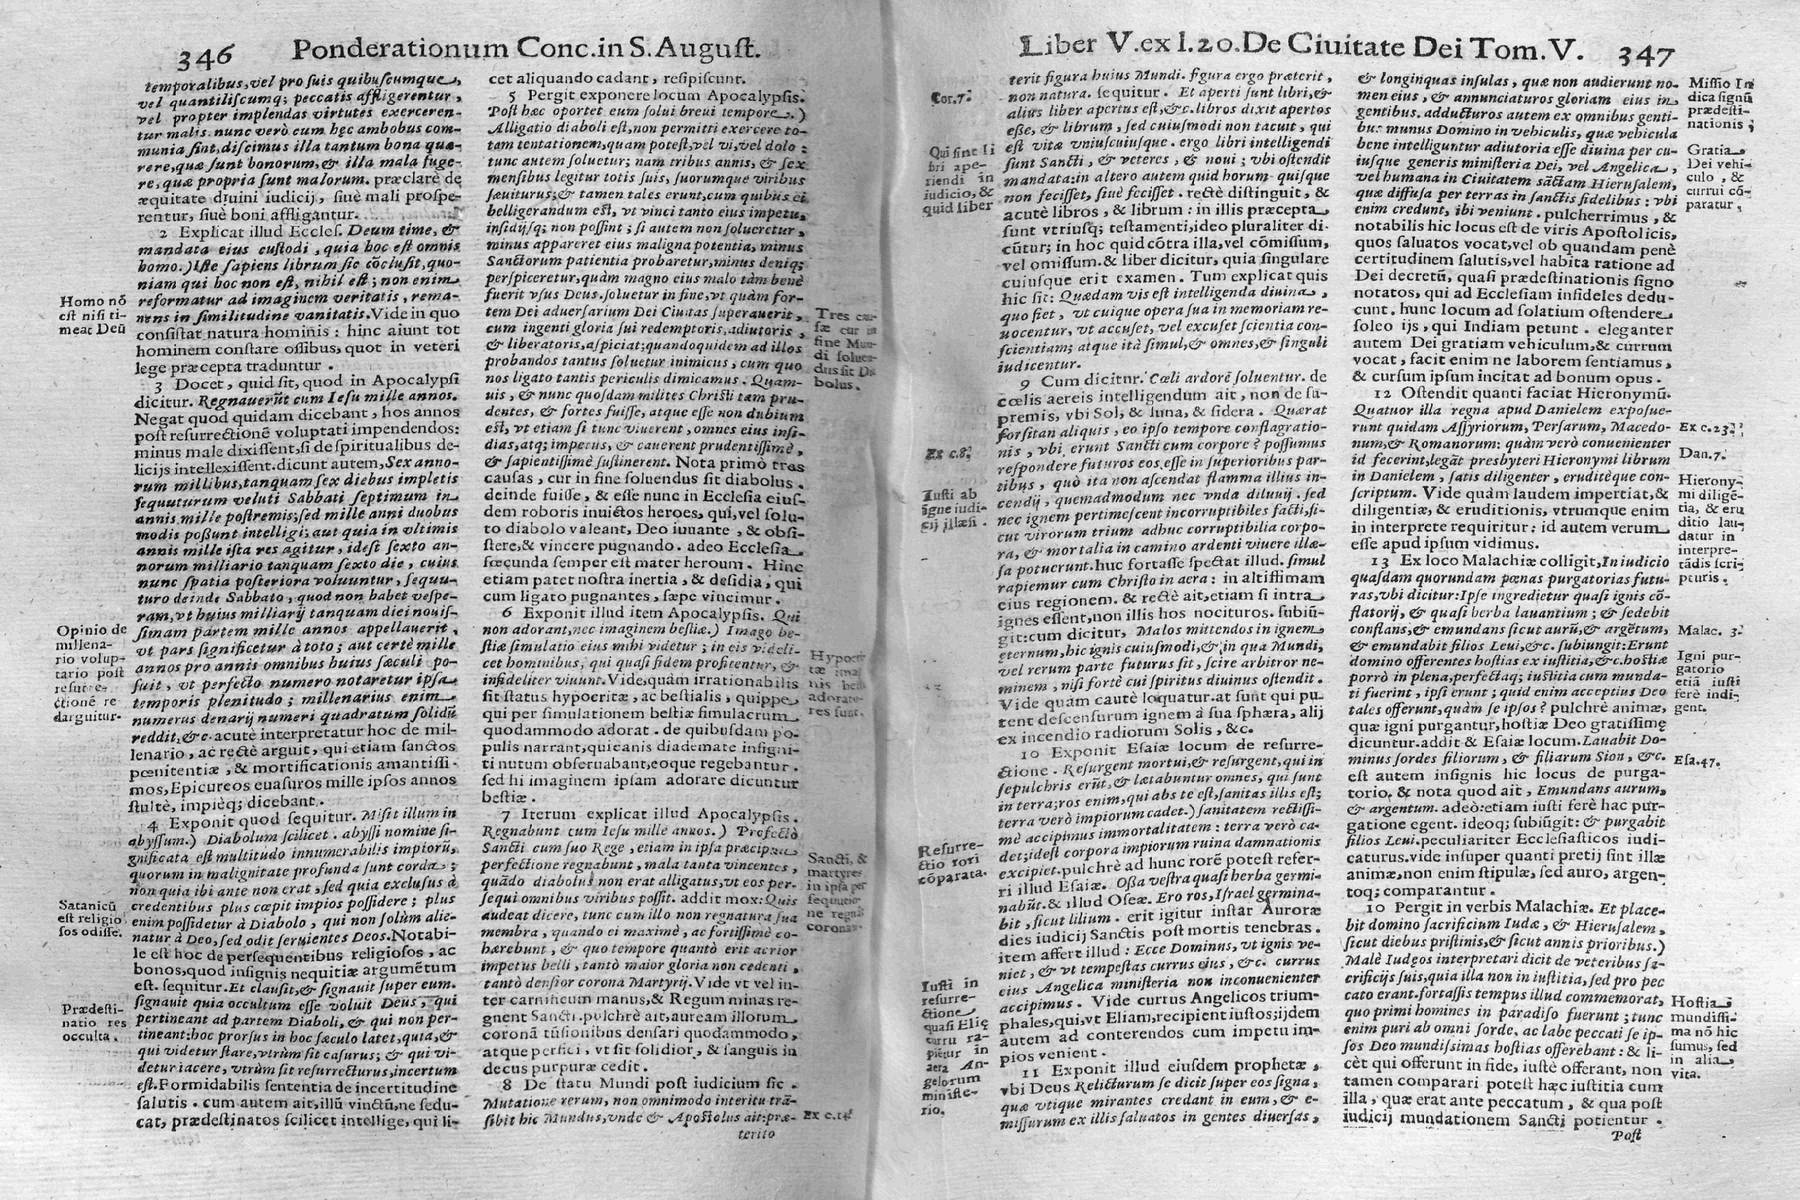 346 Ponderationum Conc.in S.August.
temporalibus, vel pro suis quibuscumque,
vel quantiliscumq; peccatis affligerentur,
vel propter implendas virtutes exerceren-
tur mali. nunc verò cum hęc ambobus com-
munia sint, discimus illa tantum bona quæ-
rere, quæ sunt bonorum, & illa mala fuge-
re, quæ propria sunt malorum. præclarè de
æquitate diuini iudicij, siuè mali prospe-
rentur, siuè boni affligantur.
2 Explicat illud Eccles. Deum time, &
mandata eius custodi, quia hoc est omnis
homo.) Iste sapiens librum sic cōclusit, quo-
niam qui hoc non est, nihil est; non enim
reformatur ad imaginem veritatis, rema-
nens in similitudine vanitatis. Vide in quo
consistat natura hominis: hinc aiunt tot
hominem constare ossibus, quot in veteri
lege præcepta traduntur.
3 Docet, quid sit, quod in Apocalypsi
dicitur. Regnauerūt cum Iesu mille annos.
Negat quod quidam dicebant, hos annos
post resurrectionē voluptati impendendos:
minus male dixissent, si de spiritualibus de-
licijs intellexissent. dicunt autem, Sex anno-
rum millibus, tanquam sex diebus impletis
sequuturum veluti Sabbati septimum in
annis mille postremis; sed mille anni duobus
modis possunt intelligi; aut quia in vltimis
annis mille ista res agitur, idest sexto an-
norum milliario tanquam sexto die, cuius
nunc spatia posteriora voluuntur, sequu-
turo deinde Sabbato, quod non habet vespe-
ram, vt huius milliarij tanquam diei nouis-
simam partem mille annos appellauerit,
vt pars significetur à toto; aut certè mille
annos pro annis omnibus huius sæculi po-
suit, vt perfecto numero notaretur ipsa
temporis plenitudo; millenarius enim
numerus denarij numeri quadratum solidū
reddit, &c. acutè interpretatur hoc de mil-
lenario, ac rectè arguit, qui etiam sanctos
pœnitentiæ, & mortificationis amantissi-
mos, Epicureos euasuros mille ipsos annos
stultè, impièq; dicebant.
4 Exponit quod sequitur. Misit illum in
abyssum.) Diabolum scilicet. abyssi nomine si-
gnificata est multitudo innumerabilis impiorū,
quorum in malignitate profunda sunt corda;
non quia ibi ante non erat, sed quia exclusus à
credentibus plus cœpit impios possidere; plus
enim possidetur à Diabolo, qui non solùm alie-
natur à Deo, sed odit seruientes Deos. Notabi-
le est hoc de persequentibus religiosos, ac
bonos, quod insignis nequitiæ argumētum
est. sequitur. Et clausit, & signauit super eum.
signauit quia occultum esse voluit Deus, qui
pertineant ad partem Diaboli, & qui non per-
tineant: hoc prorsus in hoc sæculo latet, quia, &
qui videtur stare, vtrùm sit casurus; & qui vi-
detur iacere, vtrùm sit resurrecturus, incertum
est. Formidabilis sententia de incertitudine
salutis. cum autem ait, illū vinctū, ne sedu-
cat, prædestinatos scilicet intellige, qui li-
Homo nō
est nisi ti-
meat Deū
Opinio de
millena-
rio volup-
tario post
resurre-
ctionē re
darguitur.
Satanicū
est religio
sos odisse.
Prædesti-
natio res
occulta.
cet aliquando cadant, resipiscunt.
5 Pergit exponere locum Apocalypsis.
Post hæc oportet eum solui breui tempore.)
Alligatio diaboli est, non permitti exercere to-
tam tentationem, quam potest, vel vi, vel dolo:
tunc autem soluetur; nam tribus annis, & sex
mensibus legitur totis suis, suorumque viribus
sæuiturus; & tamen tales erunt, cum quibus ei
belligerandum est, vt vinci tanto eius impetu,
insidijsq; non possint; si autem non solueretur,
minus appareret eius maligna potentia, minus
Sanctorum patientia probaretur, minus deniq;
perspiceretur, quàm magno eius malo tàm benè
fuerit vsus Deus. soluetur in fine, vt quàm for-
tem Dei aduersarium Dei Ciuitas superauerit,
cum ingenti gloria sui redemptoris, adiutoris,
& liberatoris, aspiciat; quandoquidem ad illos
probandos tantus soluetur inimicus, cum quo
nos ligato tantis periculis dimicamus. Quam-
uis, & nunc quosdam milites Christi tam pru-
dentes, & fortes fuisse, atque esse non dubium
est, vt etiam si tunc viuerent, omnes eius insi-
dias, atq; impetus, & cauerent prudentissimè,
& sapientissimè sustinerent. Nota primò tres
causas, cur in fine soluendus sit diabolus.
deinde fuisse, & esse nunc in Ecclesia eius-
dem roboris inuictos heroes, qui, vel solu-
to diabolo valeant, Deo iuuante, & obsi-
stere, & vincere pugnando. adeo Ecclesia
fœcunda semper est mater heroum. Hinc
etiam patet nostra inertia, & desidia, qui
cum ligato pugnantes, sæpe vincimur.
6 Exponit illud item Apocalypsis. Qui
non adorant, nec imaginem bestiæ.) Imago be-
stiæ simulatio eius mihi videtur; in eis videli-
cet hominibus, qui quasi fidem profitentur, &
infideliter viuunt. Vide, quàm irrationabilis
sit status hypocritæ, ac bestialis, quippe
qui per simulationem bestiæ simulacrum
quodammodo adorat. de quibusdam po-
pulis narrant, qui canis diademate insigni-
ti nutum obseruabant, eoque regebantur.
sed hi imaginem ipsam adorare dicuntur
bestiæ.
7 Iterum explicat illud Apocalypsis.
Regnabunt cum Iesu mille annos.) Profectò
Sancti cum suo Rege, etiam in ipsa præcipua
perfectione regnabunt, mala tanta vincentes,
quādo diabolus non erat alligatus, vt eos per-
sequi omnibus viribus possit. addit mox: Quis
audeat dicere, tunc cum illo non regnatura sua
membra, quando ei maximè, ac fortissimè co-
hærebunt, & quo tempore quantò erit acrior
impetus belli, tantò maior gloria non cedenti,
tantò densior corona Martyrij. Vide vt vel in-
ter carnificum manus, & Regum minas re-
gnent Sancti. pulchrè ait, auream illorum
coronā tūsionibus densari quodammodo,
atque perfici, vt sit solidior, & sanguis in
decus purpuræ cedit.
8 De statu Mundi post iudicium sic.
Mutatione rerum, non omnimodo interitu trā-
sibit hic Mundus, vnde & Apostolus ait: præ-
terito
Tres cau-
sæ cur in
fine Mun-
di soluen-
dus sit Di
bolus.
Sancti, &
martyres
in ipsa per
Ex c.14.
Liber V.ex l.20.De Ciuitate Dei Tom.V. 347
Cor.7.
Qui sint li
bri ape-
riendi in
iudicio, &
quid liber
Ex c.8.
Iusti ab
igne iudi-
cij illæsi.
Resurre-
ctio rori
cōparata.
Iusti in
resurre-
ctione
quasi Elię
curru ra-
piētur in
aera An-
gelorum
ministe-
rio.
terit figura huius Mundi. figura ergo præterit,
non natura. sequitur. Et aperti sunt libri, &
alius liber apertus est, &c. libros dixit apertos
esse, & librum, sed cuiusmodi non tacuit, qui
est vitæ vniuscuiusque. ergo libri intelligendi
sunt Sancti, & veteres, & noui; vbi ostendit
mandata: in altero autem quid horum quisque
non fecisset, siuè fecisset. rectè distinguit, &
acutè libros, & librum: in illis præcepta
sunt vtriusq; testamenti, ideo pluraliter di-
cūtur; in hoc quid cōtra illa, vel cōmissum,
vel omissum. & liber dicitur, quia singulare
cuiusque erit examen. Tum explicat quis
hic sit: Quædam vis est intelligenda diuina,
quo fiet, vt cuique opera sua in memoriam re-
uocentur, vt accuset, vel excuset scientia con-
scientiam; atque ità simul, & omnes, & singuli
iudicentur.
9 Cum dicitur. Cœli ardorē soluentur. de
cœlis aereis intelligendum ait, non de su-
premis, vbi Sol, & luna, & sidera. Quærat
forsitan aliquis, eo ipso tempore conflagratio-
nis, vbi erunt Sancti cum corpore? possumus
respondere futuros eos esse in superioribus par-
tibus, quò ita non ascendat flamma illius in-
cendij, quemadmodum nec vnda diluuij. sed
nec ignem pertimescent incorruptibiles facti, si-
cut virorum trium adhuc corruptibilia corpo-
ra, & mortalia in camino ardenti viuere illæ-
sa potucrunt. huc fortasse spectat illud. simul
rapiemur cum Christo in aera: in altissimam
eius regionem. & rectè ait, etiam si intra
ignes essent, non illis hos nocituros. subiū-
git: cum dicitur, Malos mittendos in ignem
eternum, hic ignis cuiusmodi, & in qua Mundi,
vel rerum parte futurus sit, scire arbitror ne-
minem, nisi fortè cui spiritus diuinus ostendit.
Vide quàm cautè loquatur. at sunt qui pu-
tent descensurum ignem à sua sphæra, alij
ex incendio radiorum Solis, &c.
10 Exponit Esaiæ locum de resurre-
ctione. Resurgent mortui, & resurgent, qui in
sepulchris erūt, & lætabuntur omnes, qui sunt
in terra; ros enim, qui abs te est, sanitas illis est;
terra verò impiorum cadet.) sanitatem rectissi-
mè accipimus immortalitatem: terra verò ca-
det; idest corpora impiorum ruina damnationis
excipiet. pulchrè ad hunc rorē potest refer-
ri illud Esaiæ. Ossa vestra quasi herba germi-
nabūt. & illud Oseæ. Ero ros, Israel germina-
bit, sicut lilium. erit igitur instar Auroræ
dies iudicij Sanctis post mortis tenebras.
item affert illud: Ecce Dominus, vt ignis ve-
niet, & vt tempestas currus eius, &c. currus
eius Angelica ministeria non inconuenienter
accipimus. Vide currus Angelicos trium-
phales, qui, vt Eliam, recipient iustos; ijdem
autem ad conterendos cum impetu im-
pios venient.
11 Exponit illud eiusdem prophetæ,
vbi Deus Relicturum se dicit super eos signa,
quæ vtique mirantes credant in eum, & e-
missurum ex illis saluatos in gentes diuersas,
& longinquas insulas, quæ non audierunt no-
men eius, & annunciaturos gloriam eius in
gentibus. adducturos autem ex omnibus genti-
bus munus Domino in vehiculis, quæ vehicula
bene intelliguntur adiutoria esse diuina per cu-
iusque generis ministeria Dei, vel Angelica,
vel humana in Ciuitatem sāctam Hierusalem,
quæ diffusa per terras in sanctis fidelibus: vbi
enim credunt, ibi veniunt. pulcherrimus, &
notabilis hic locus est de viris Apostolicis,
quos saluatos vocat, vel ob quandam penè
certitudinem salutis, vel habita ratione ad
Dei decretū, quasi prædestinationis signo
notatos, qui ad Ecclesiam infideles dedu-
cunt. hunc locum ad solatium ostendere
soleo ijs, qui Indiam petunt. eleganter
autem Dei gratiam vehiculum, & currum
vocat, facit enim ne laborem sentiamus,
& cursum ipsum incitat ad bonum opus.
12 Ostendit quanti faciat Hieronymū.
Quatuor illa regna apud Danielem exposue-
runt quidam Assyriorum, Persarum, Macedo-
num, & Romanorum: quàm verò conuenienter
id fecerint, legāt presbyteri Hieronymi librum
in Danielem, satis diligenter, eruditèque con-
scriptum. Vide quàm laudem imperciat, &
diligentiæ, & eruditionis, vtrumque enim
in interprete requiritur: id autem verum
esse apud ipsum vidimus.
13 Ex loco Malachiæ colligit, In iudicio
quasdam quorundam pœnas purgatorias futu-
ras, vbi dicitur: Ipse ingredietur quasi ignis cō-
flatorij, & quasi herba lauantium; & sedebit
conflans, & emundans sicut aurū, & argētum,
& emundabit filios Leui, &c. subiungit: Erunt
domino offerentes hostias ex iustitia, &c. hostiæ
porrò in plena, perfectaq; iustitia cum munda-
ti fuerint, ipsi erunt; quid enim acceptius Deo
tales offerunt, quàm se ipsos? pulchrè animæ,
quæ igni purgantur, hostiæ Deo gratissimę
dicuntur. addit & Esaiæ locum. Lauabit Do-
minus sordes filiorum, & filiarum Sion, &c.
est autem insignis hic locus de purga-
torio. & nota quod ait, Emundans aurum,
& argentum. adeò: etiam iusti ferè hac pur-
gatione egent. ideoq; subiūgit: & purgabit
filios Leui. peculiariter Ecclesiasticos iudi-
caturus. vide insuper quanti pretij sint illæ
animæ, non enim stipulæ, sed auro, argen-
toq; comparantur.
10 Pergit in verbis Malachiæ. Et place-
bit domino sacrificium Iudæ, & Hierusalem,
sicut diebus pristinis, & sicut annis prioribus.)
Malè Iudęos interpretari dicit de veteribus sa-
crificijs suis, quia illa non in iustitia, sed pro pec
cato erant. fortassis tempus illud commemorat,
quo primi homines in paradiso fuerunt; tunc
enim puri ab omni sorde, ac labe peccati se ip-
sos Deo mundissimas hostias offerebant: & li-
cèt qui offerunt in fide, iustè offerant, non
tamen comparari potest hæc iustitia cum
illa, quæ erat ante peccatum, & qua post
iudicij mundationem Sancti potientur.
Post
Missio In
dica signū
prædesti-
nationis,
Gratia
Dei vehi-
culo, &
currui cō-
paratur.
Ex c.23.
Dan.7.
Hierony-
mi diligē-
tia, & eru
ditio lau-
datur in
interpre-
tādis scri-
pturis.
Malac. 3.
Igni pur-
gatorio
etiā iusti
ferè indi-
gent.
Esa.47.
Hostia
mundissi-
ma nō hic
sumus, sed
in alia
vita.